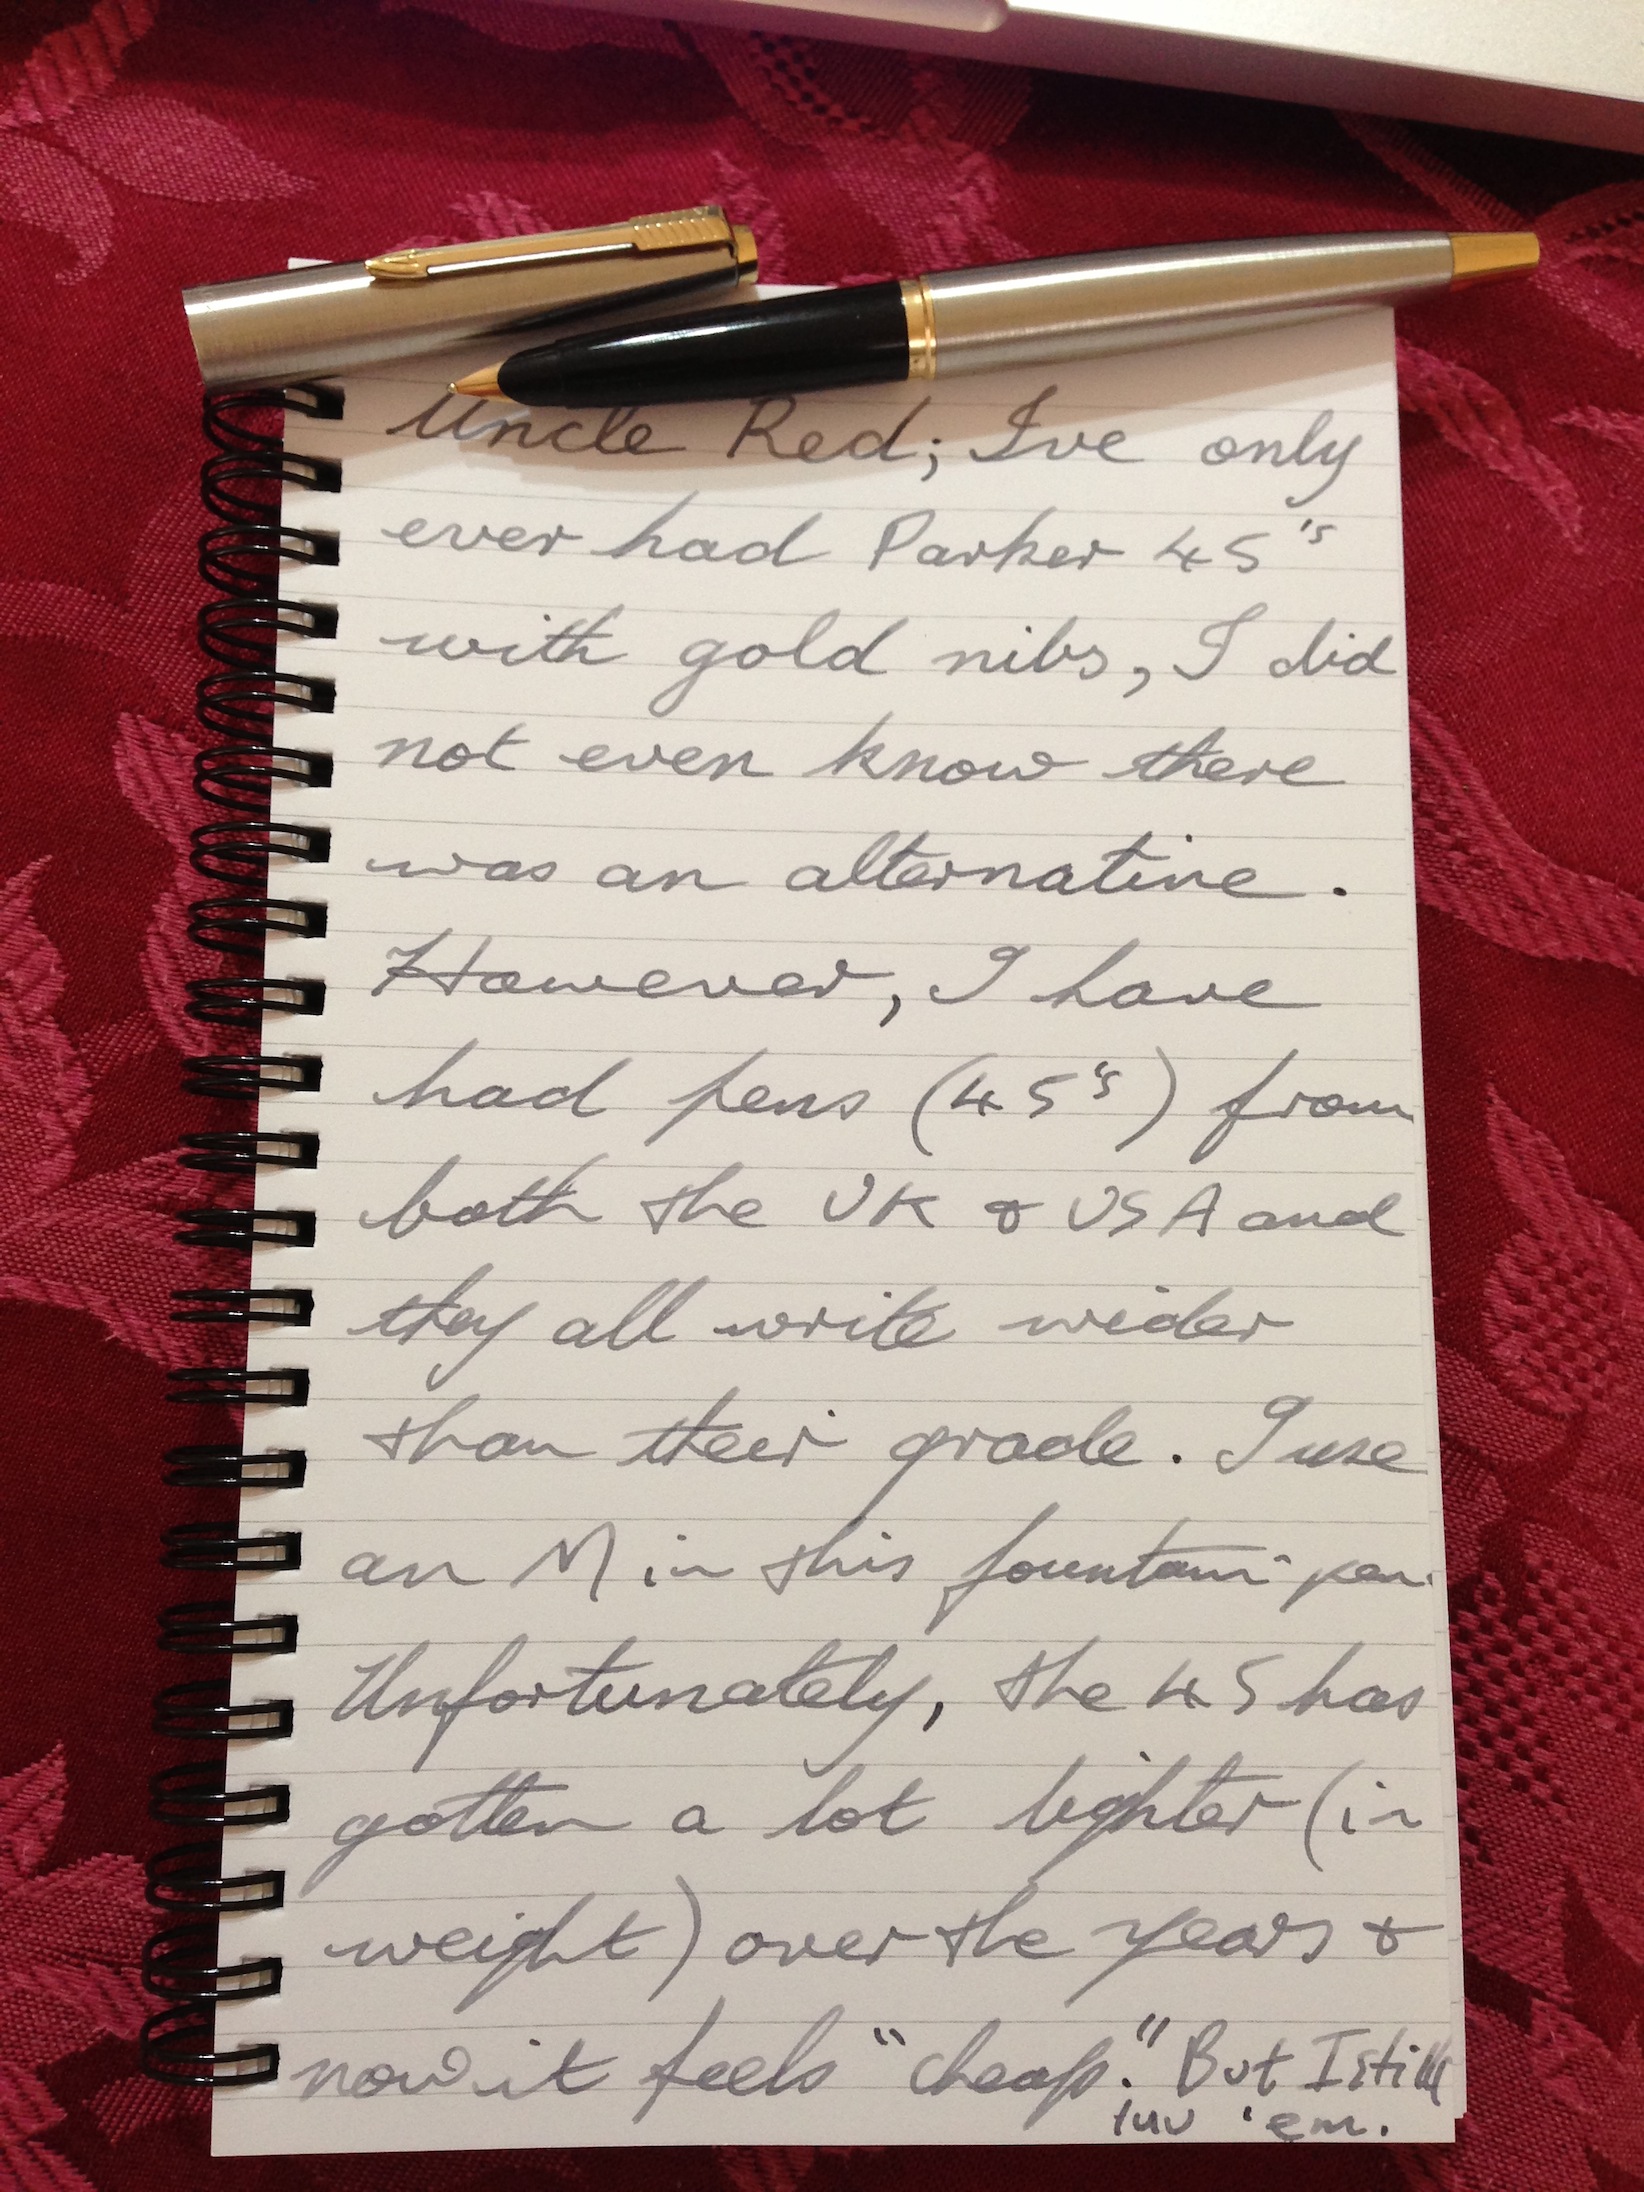 Uncle Red; I've only
ever had Parker 45's
with gold nibs, I did
not even know there
was an alternative.
However, I have
had pens (45's) from
both the UK & USA and
they all write wider
than their grade. I use
an M in this fountain pen.
Unfortunately, the 45 has
gotten a lot lighter (in
weight) over the years &
now it feels "cheap." But I still
luv 'em.